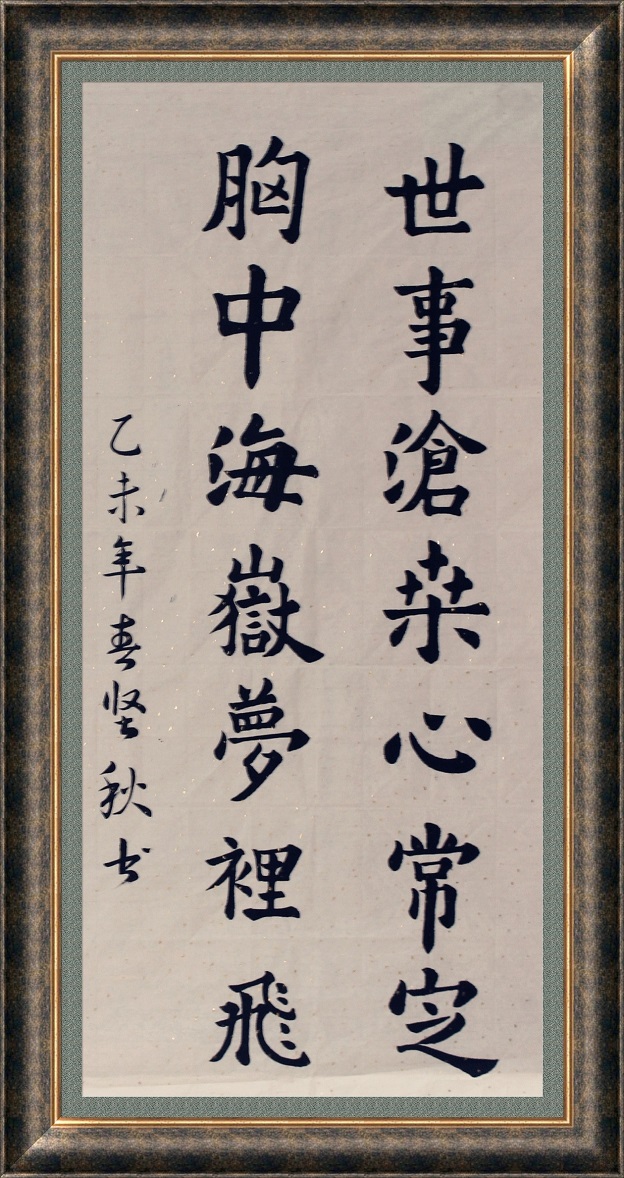 世事滄桒心常定
胸中海嶽夢裡飛
乙未年春坚秋书